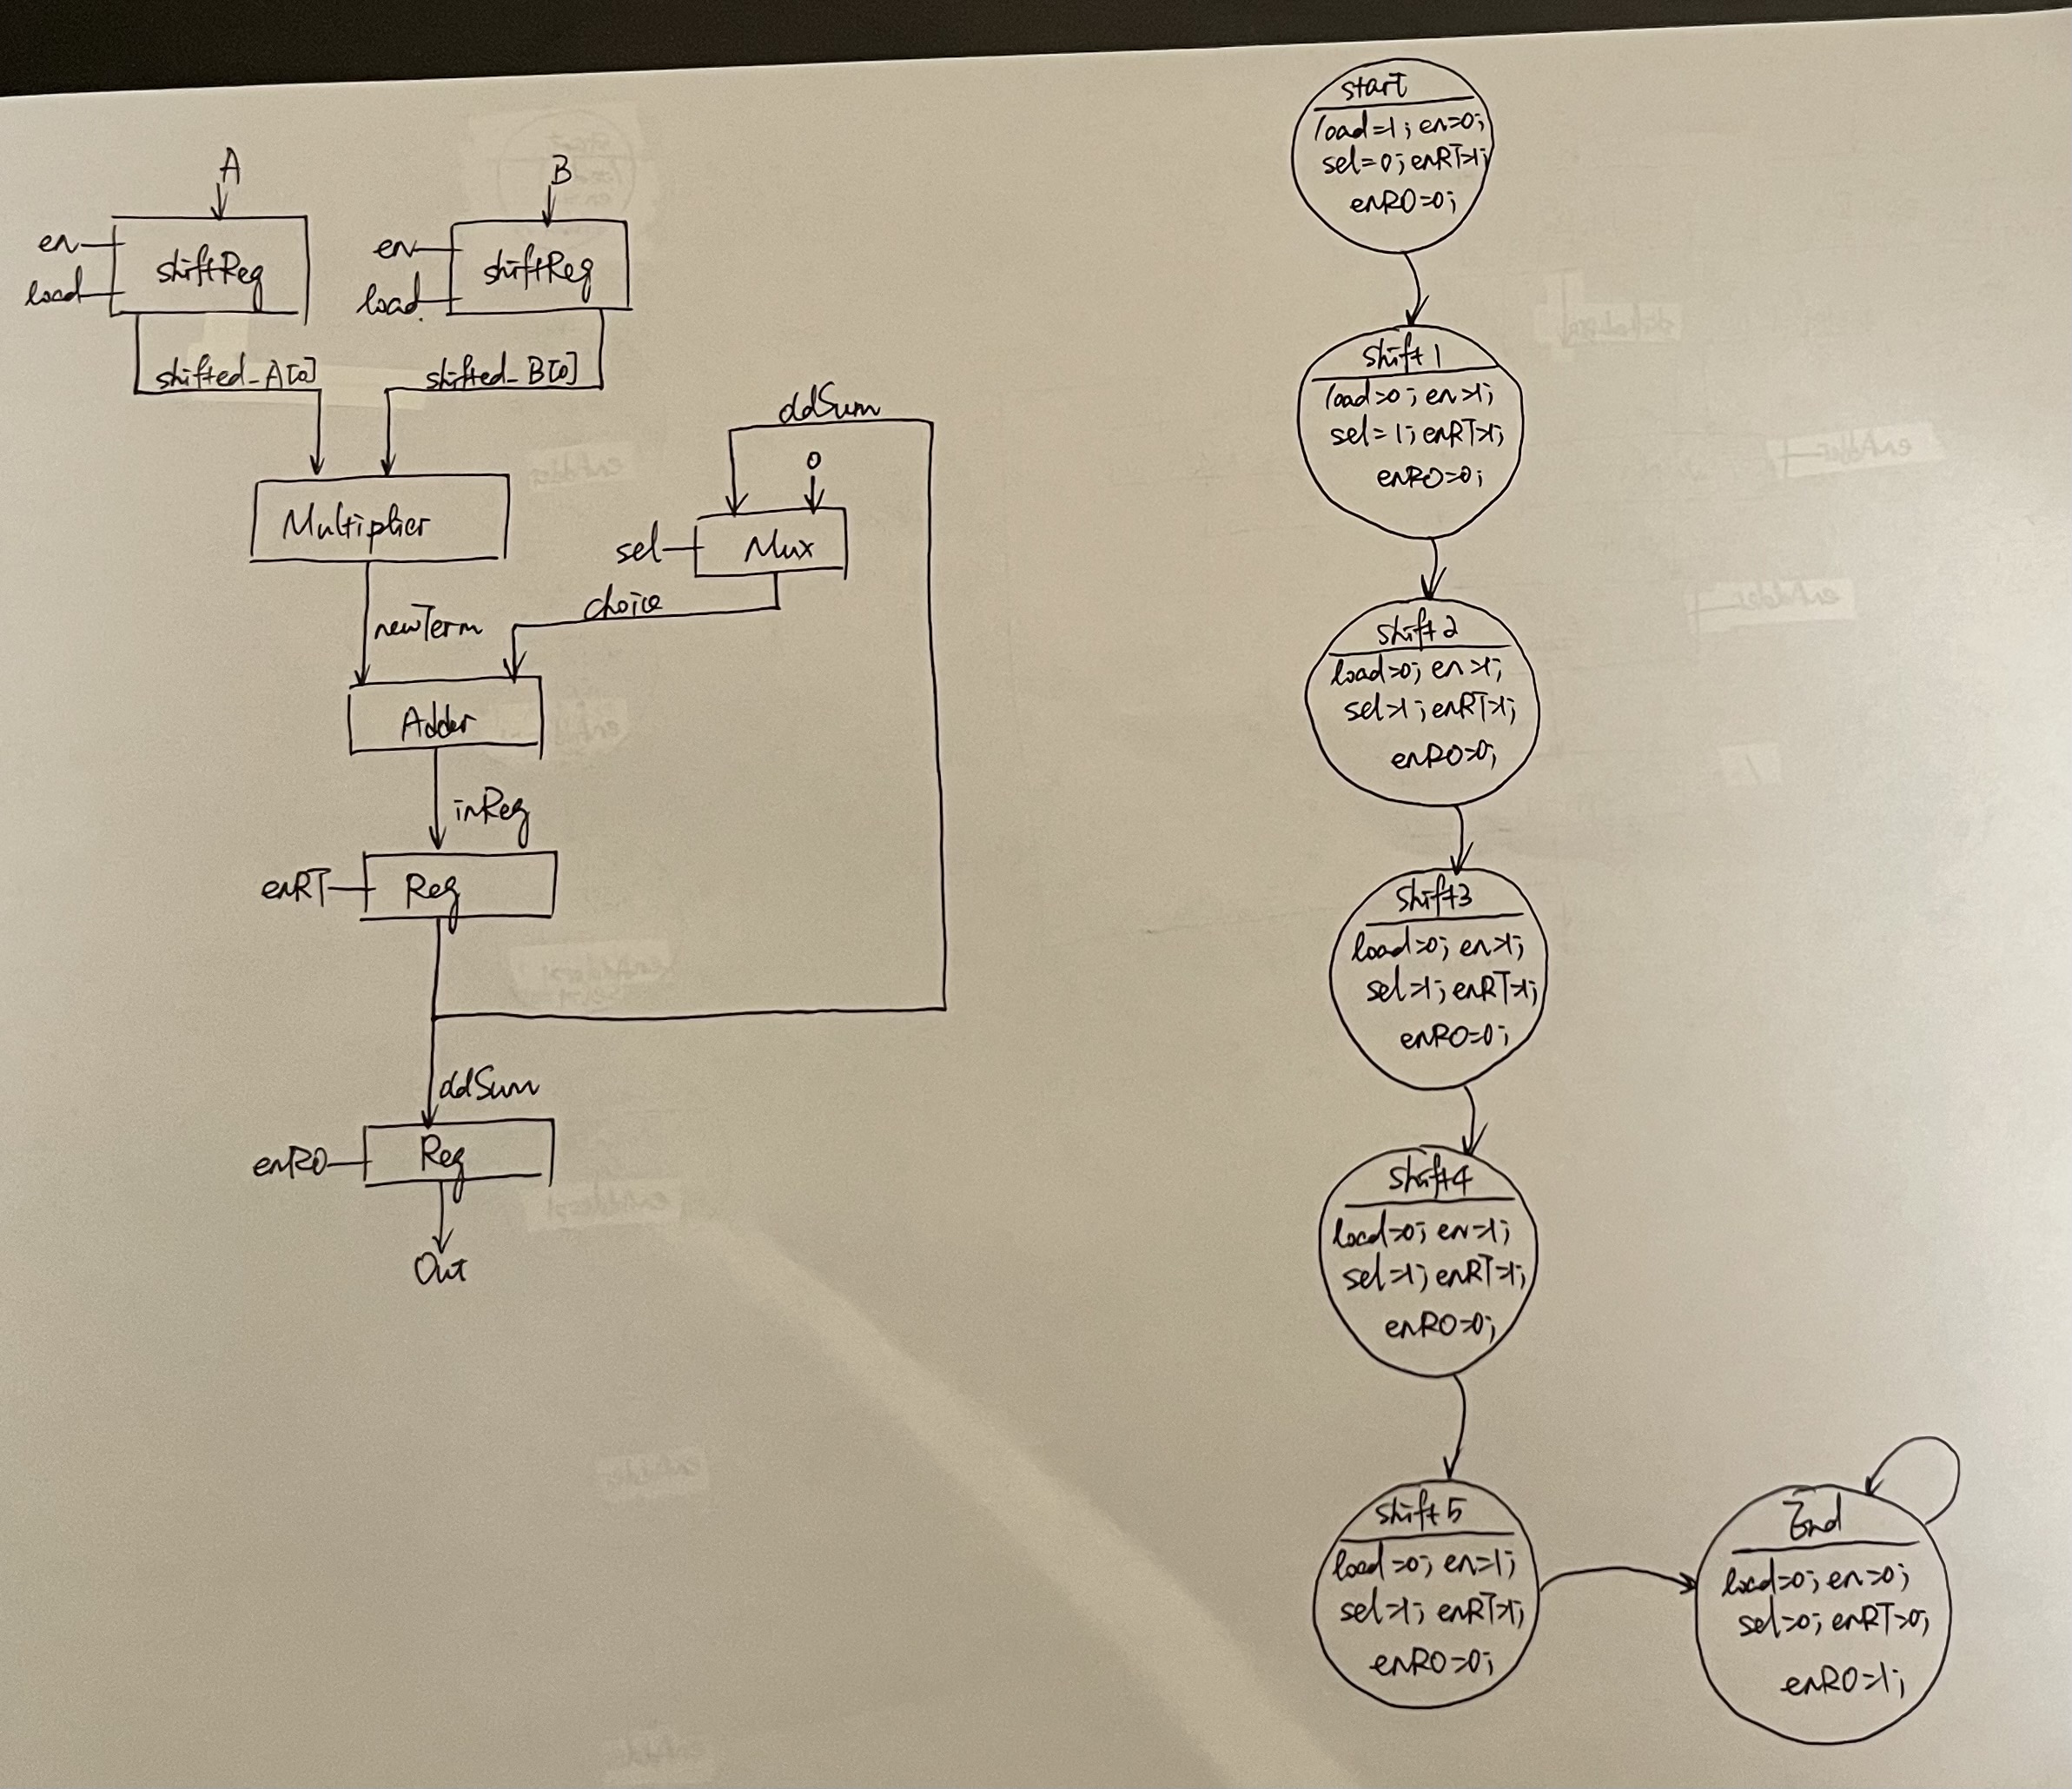 A
B
en
load
shiftReg
en
load
shiftReg
shifted_A[0]
shifted_B[0]
Multiplier
ddSum
0
sel
Mux
choice
newTerm
Adder
inReg
enRT
Reg
ddSum
enRO
Reg
Out
start
load=1; en=0;
sel=0; enRT=1;
enRO=0;
shift1
load=0; en=1;
sel=1; enRT=1;
enRO=0;
shift2
load=0; en=1;
sel=1; enRT=1;
enRO=0;
shift3
load=0; en=1;
sel=1; enRT=1;
enRO=0;
shift4
load=0; en=1;
sel=1; enRT=1;
enRO=0;
shift5
load=0; en=1;
sel=1; enRT=1;
enRO=0;
End
load=0; en=0;
sel=0; enRT=0;
enRO=1;